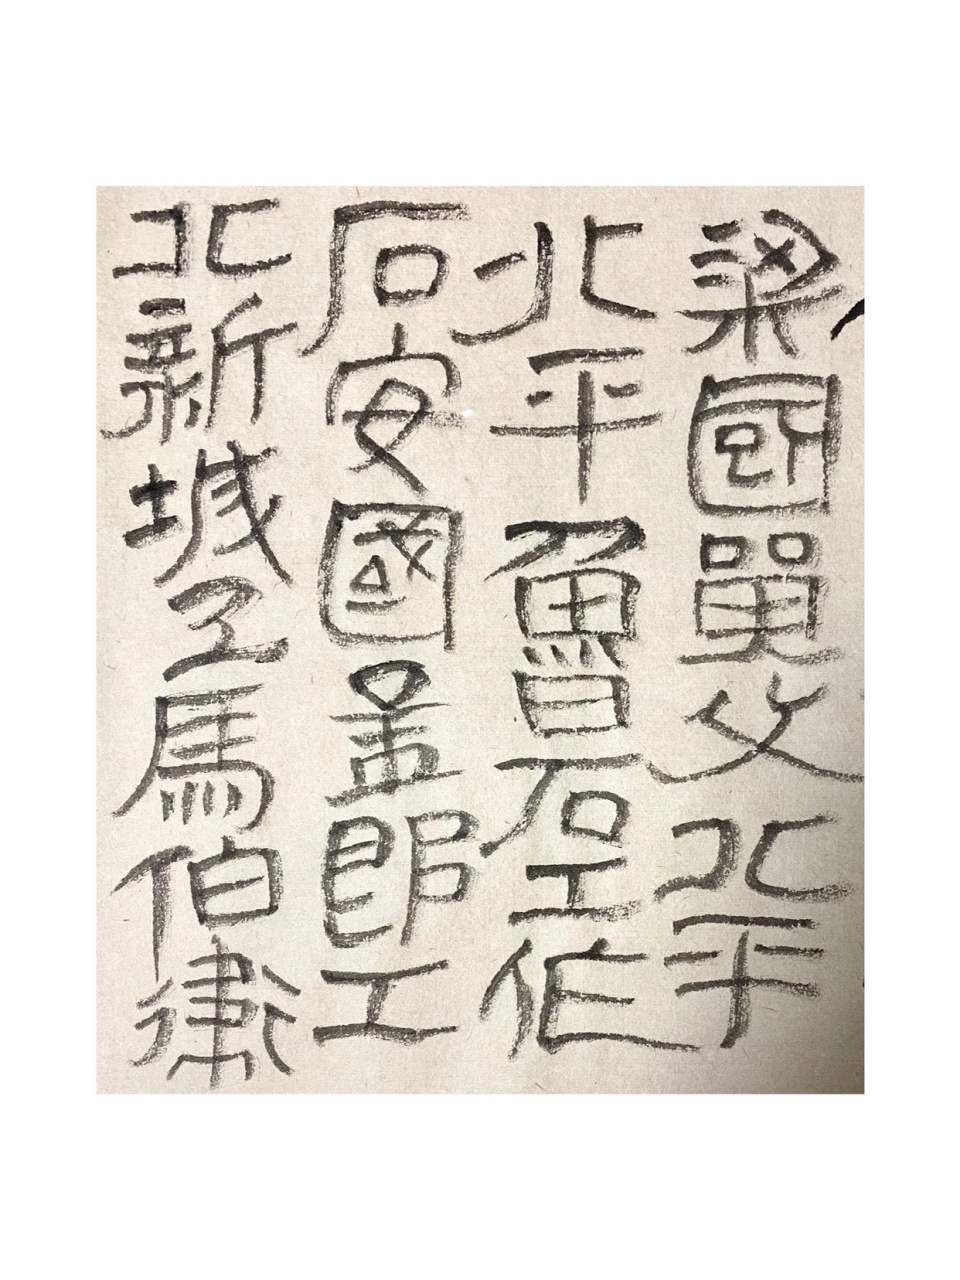 梁國單父北平
北平魯石工作
石安國孟郎工
北新城工馬伯